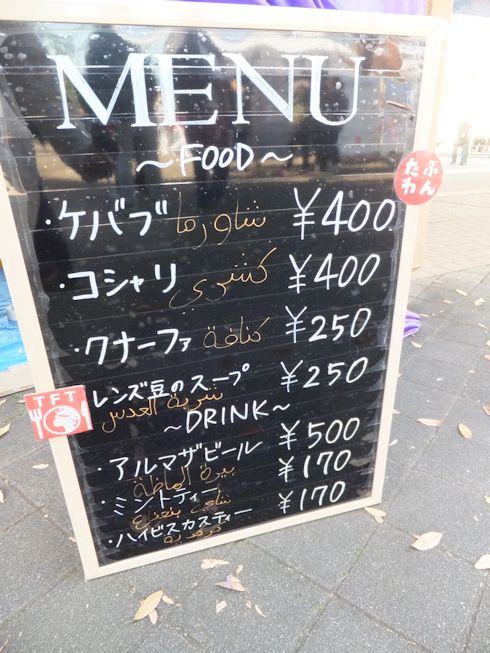 MENU
~FOOD~
・ケバブ شاورما ¥400
・コシャリ كشرى ¥400
・クナーファ كنافة ¥250
レンズ豆のスープ ¥250
شربة العدس
~DRINK~
・アルマザビール ¥500
بيرة الماظة
・ミントティー ¥170
شاي بنعناع
・ハイビスカスティー ¥170
كركدية
たふわん
TFT